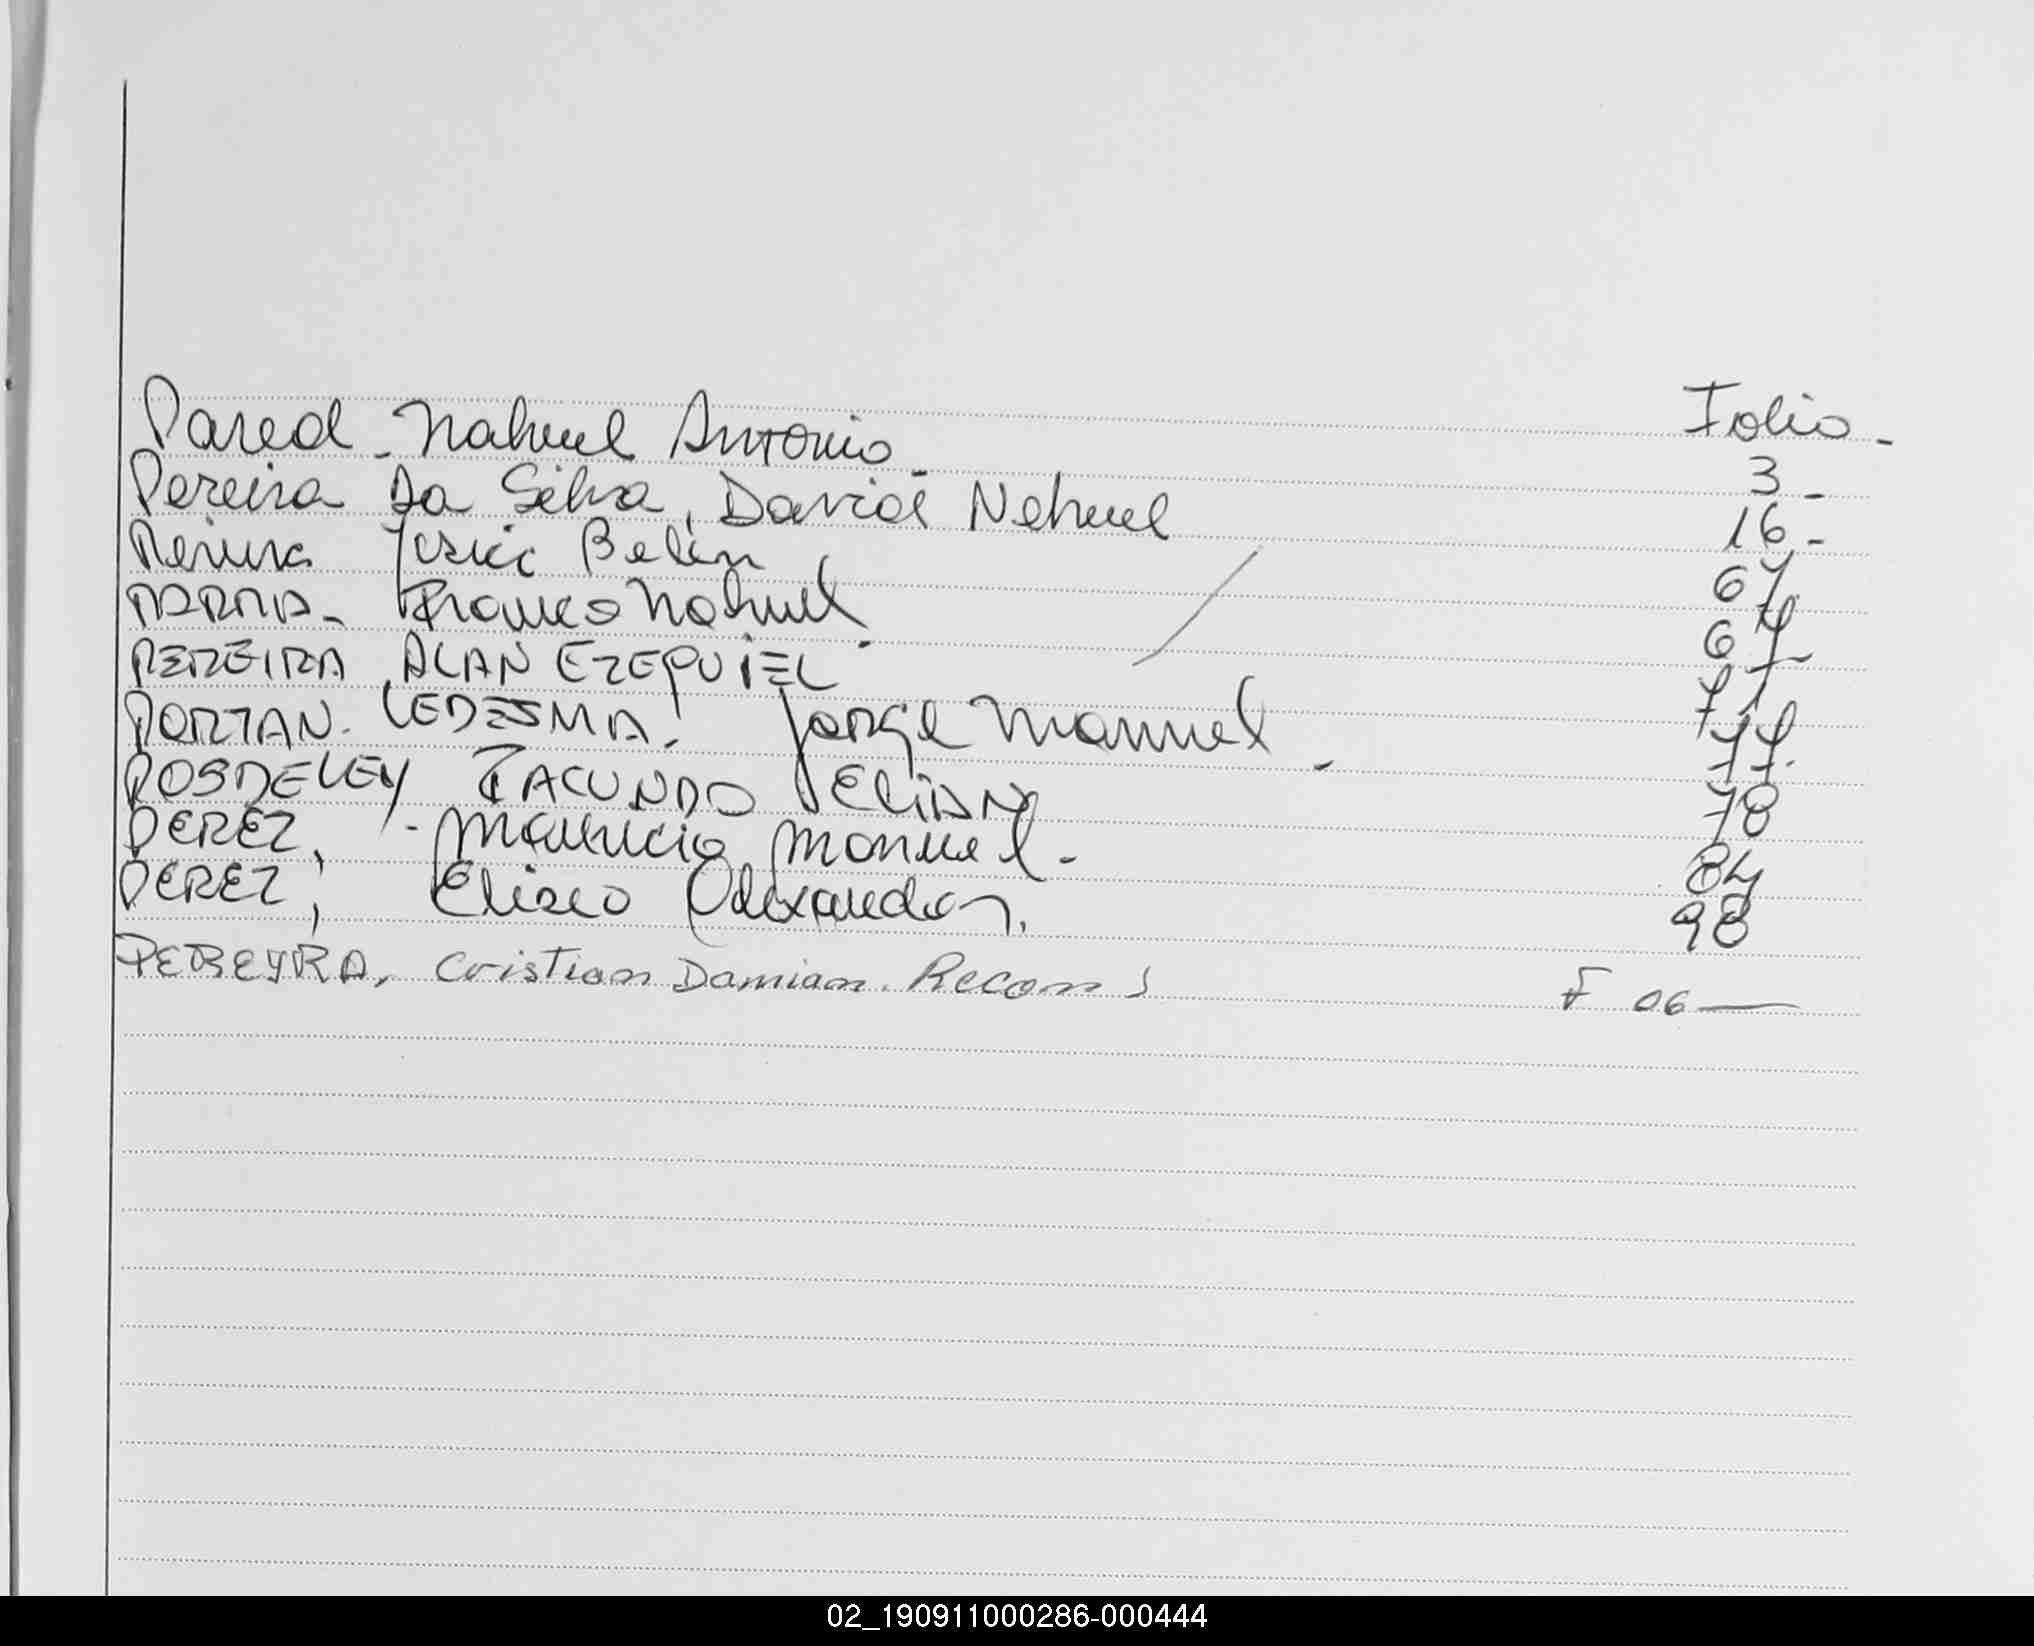 Folio -
Pared - Nahuel Antonio - 3 -
Pereira Da Silva, David Nehuel 16 -
Belén 67.
PARMA - Franco Nahuel. 67 -
PEREIRA, ALAN EZEQUIEL 71
PORTAN. LEDESMA. Jorge Manuel - 77.
FACUNDO ELIAN 78
PEREZ, - Mauricio Manuel - 84
PEREZ, Eliseo Alexander. 98
PEREYRA, Cristian Damian. Recon F 06 —
02_190911000286-000444